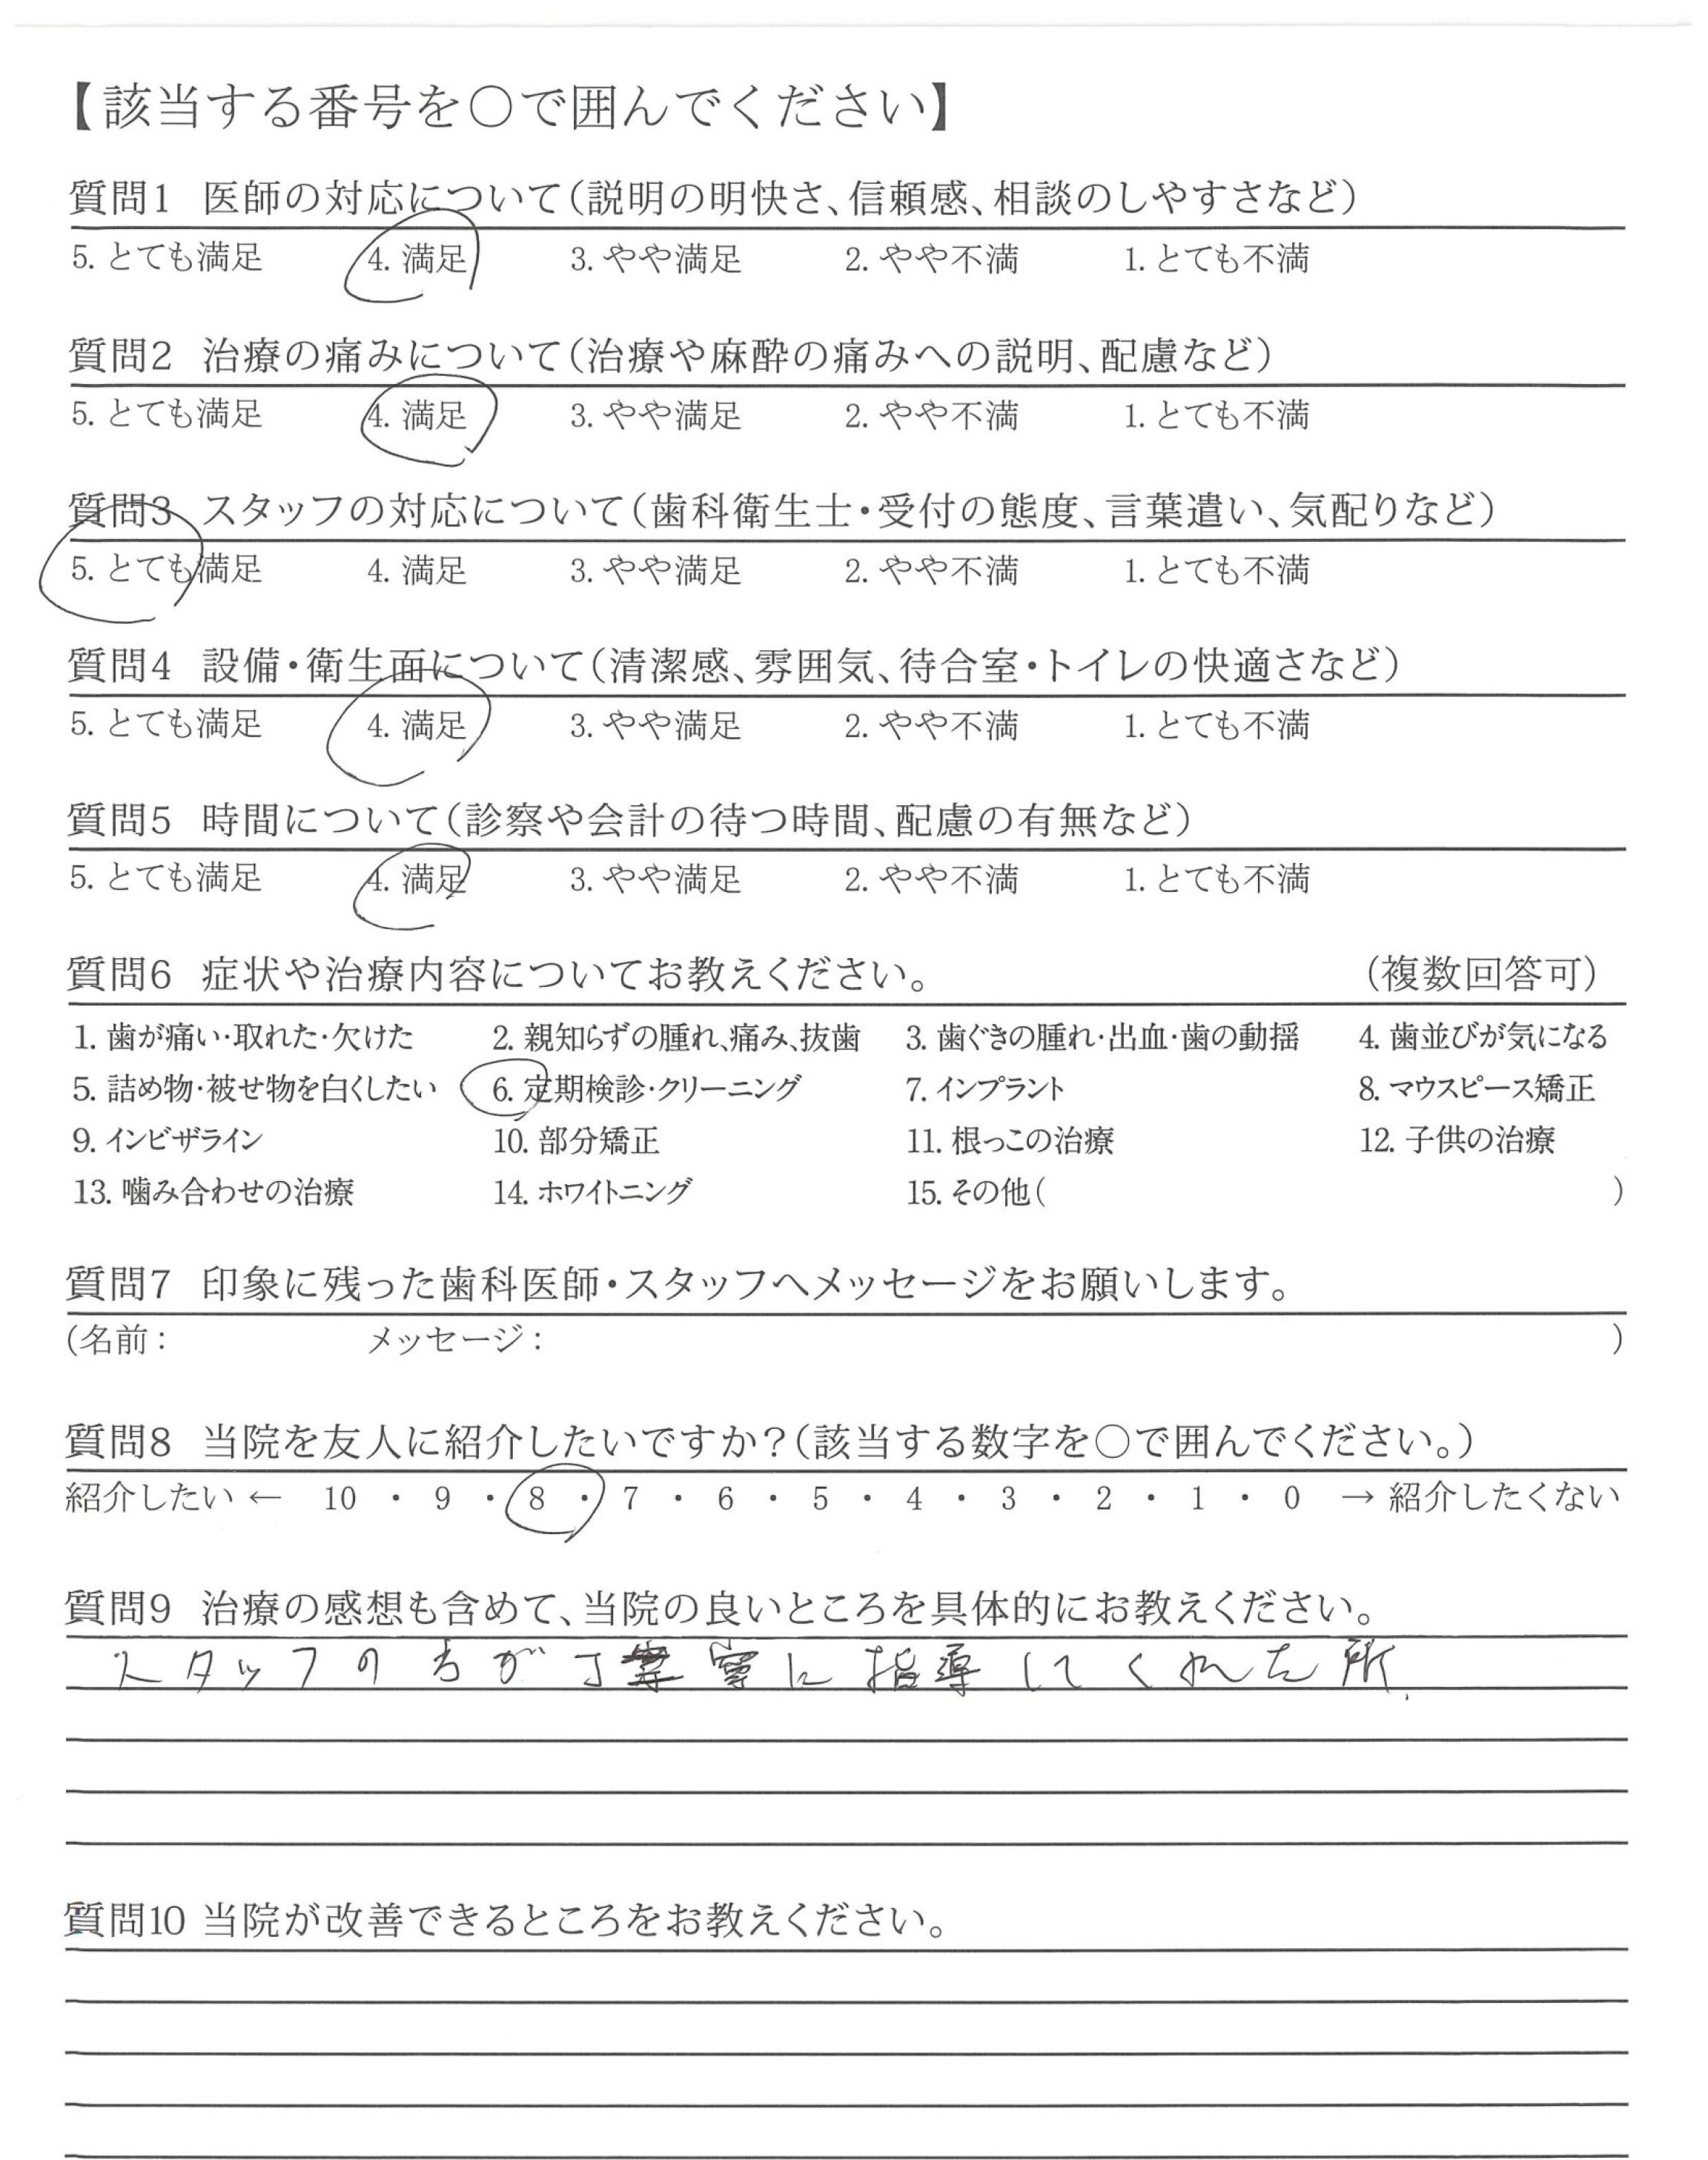 【該当する番号を○で囲んでください】
質問1 医師の対応について(説明の明快さ、信頼感、相談のしやすさなど)
5. とても満足 4. 満足 3. やや満足 2. やや不満 1. とても不満
質問2 治療の痛みについて(治療や麻酔の痛みへの説明、配慮など)
5. とても満足 4. 満足 3. やや満足 2. やや不満 1. とても不満
質問3 スタッフの対応について(歯科衛生士・受付の態度、言葉遣い、気配りなど)
5. とても満足 4. 満足 3. やや満足 2. やや不満 1. とても不満
質問4 設備・衛生面について(清潔感、雰囲気、待合室・トイレの快適さなど)
5. とても満足 4. 満足 3. やや満足 2. やや不満 1. とても不満
質問5 時間について(診察や会計の待つ時間、配慮の有無など)
5. とても満足 4. 満足 3. やや満足 2. やや不満 1. とても不満
質問6 症状や治療内容についてお教えください。 (複数回答可)
1. 歯が痛い・取れた・欠けた 2. 親知らずの腫れ、痛み、抜歯 3. 歯ぐきの腫れ・出血・歯の動揺 4. 歯並びが気になる
5. 詰め物・被せ物を白くしたい 6. 定期検診・クリーニング 7. インプラント 8. マウスピース矯正
9. インビザライン 10. 部分矯正 11. 根っこの治療 12. 子供の治療
13. 噛み合わせの治療 14. ホワイトニング 15. その他( )
質問7 印象に残った歯科医師・スタッフへメッセージをお願いします。
(名前: メッセージ: )
質問8 当院を友人に紹介したいですか?(該当する数字を○で囲んでください。)
紹介したい ← 10 ・ 9 ・ 8 ・ 7 ・ 6 ・ 5 ・ 4 ・ 3 ・ 2 ・ 1 ・ 0 → 紹介したくない
質問9 治療の感想も含めて、当院の良いところを具体的にお教えください。
スタッフの方が丁寧に指導してくれた所.
質問10 当院が改善できるところをお教えください。